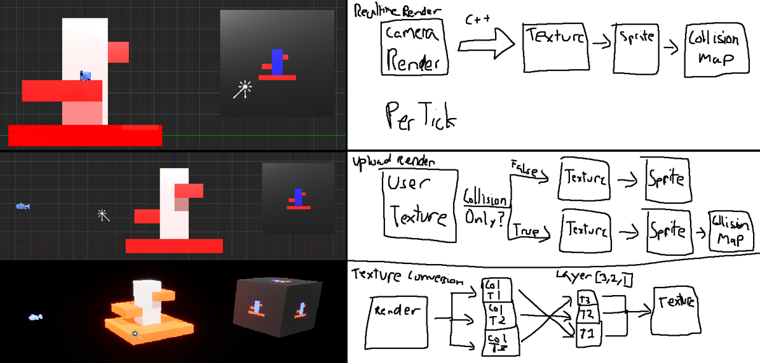 Realtime Render
Camera
Render
C++
Texture
Sprite
Collision
Map
Per Tick
Upload Render
User
Texture
Collision
Only?
False
Texture
Sprite
True
Texture
Sprite
Collision
Map
Texture Conversion
Render
Col
T1
Col
T2
Col
Layer [3,2,1]
T3
T2
T1
Texture